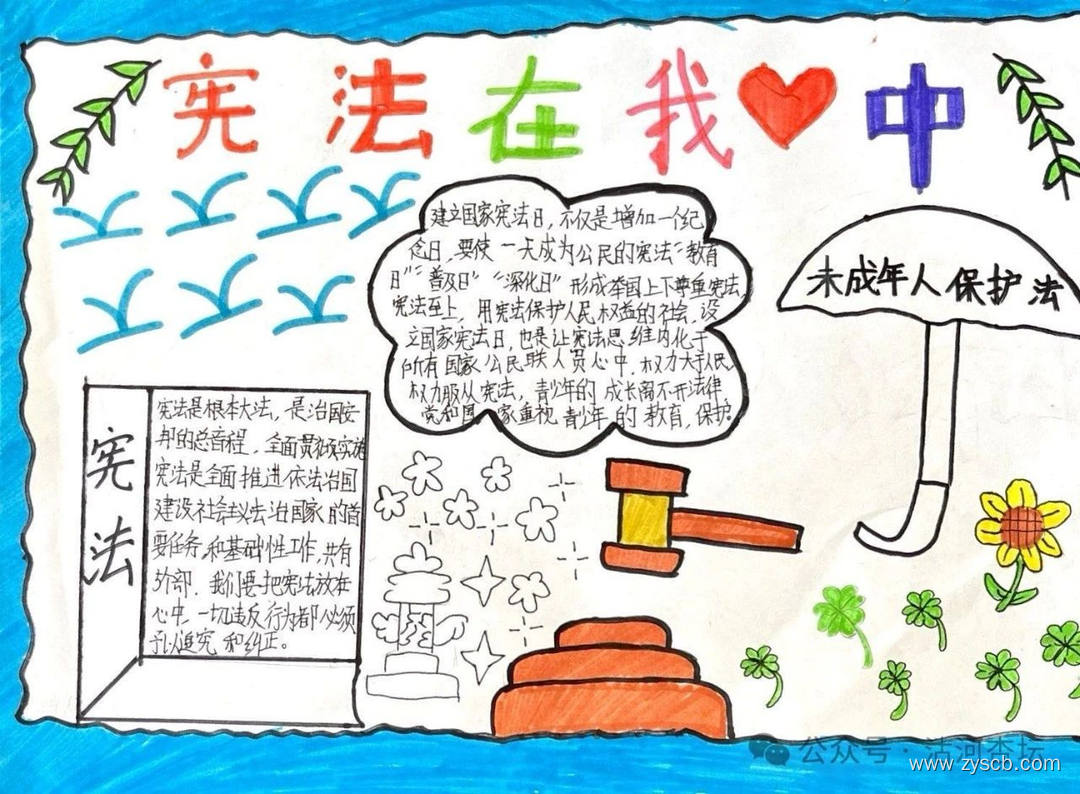 宪法在我中
建立国家宪法日,不仅是增加一个纪
念日,要使一天成为公民的宪法“教育
日”“普及日”“深化日”形成举国上下尊重宪法
宪法至上,用宪法保护人民权益的社会,设
立国家宪法日,也是让宪法思维内化于
所有国家公民联人员心中,权力大于人民
权力服从宪法,青少年的成长离不开法律
党和国家重视青少年的教育,保护。
未成年人保护法
宪法
宪法是根本大法,是治国安
邦的总章程,全面贯彻实施
宪法是全面推进依法治国
建设社会主义法治国家的首
要任务,和基础性工作,共有
外部,我们要把宪法放在
心中,一切违反行为都必须
予以追究和纠正。
公众号·沽河杏坛
www.zyscb.com